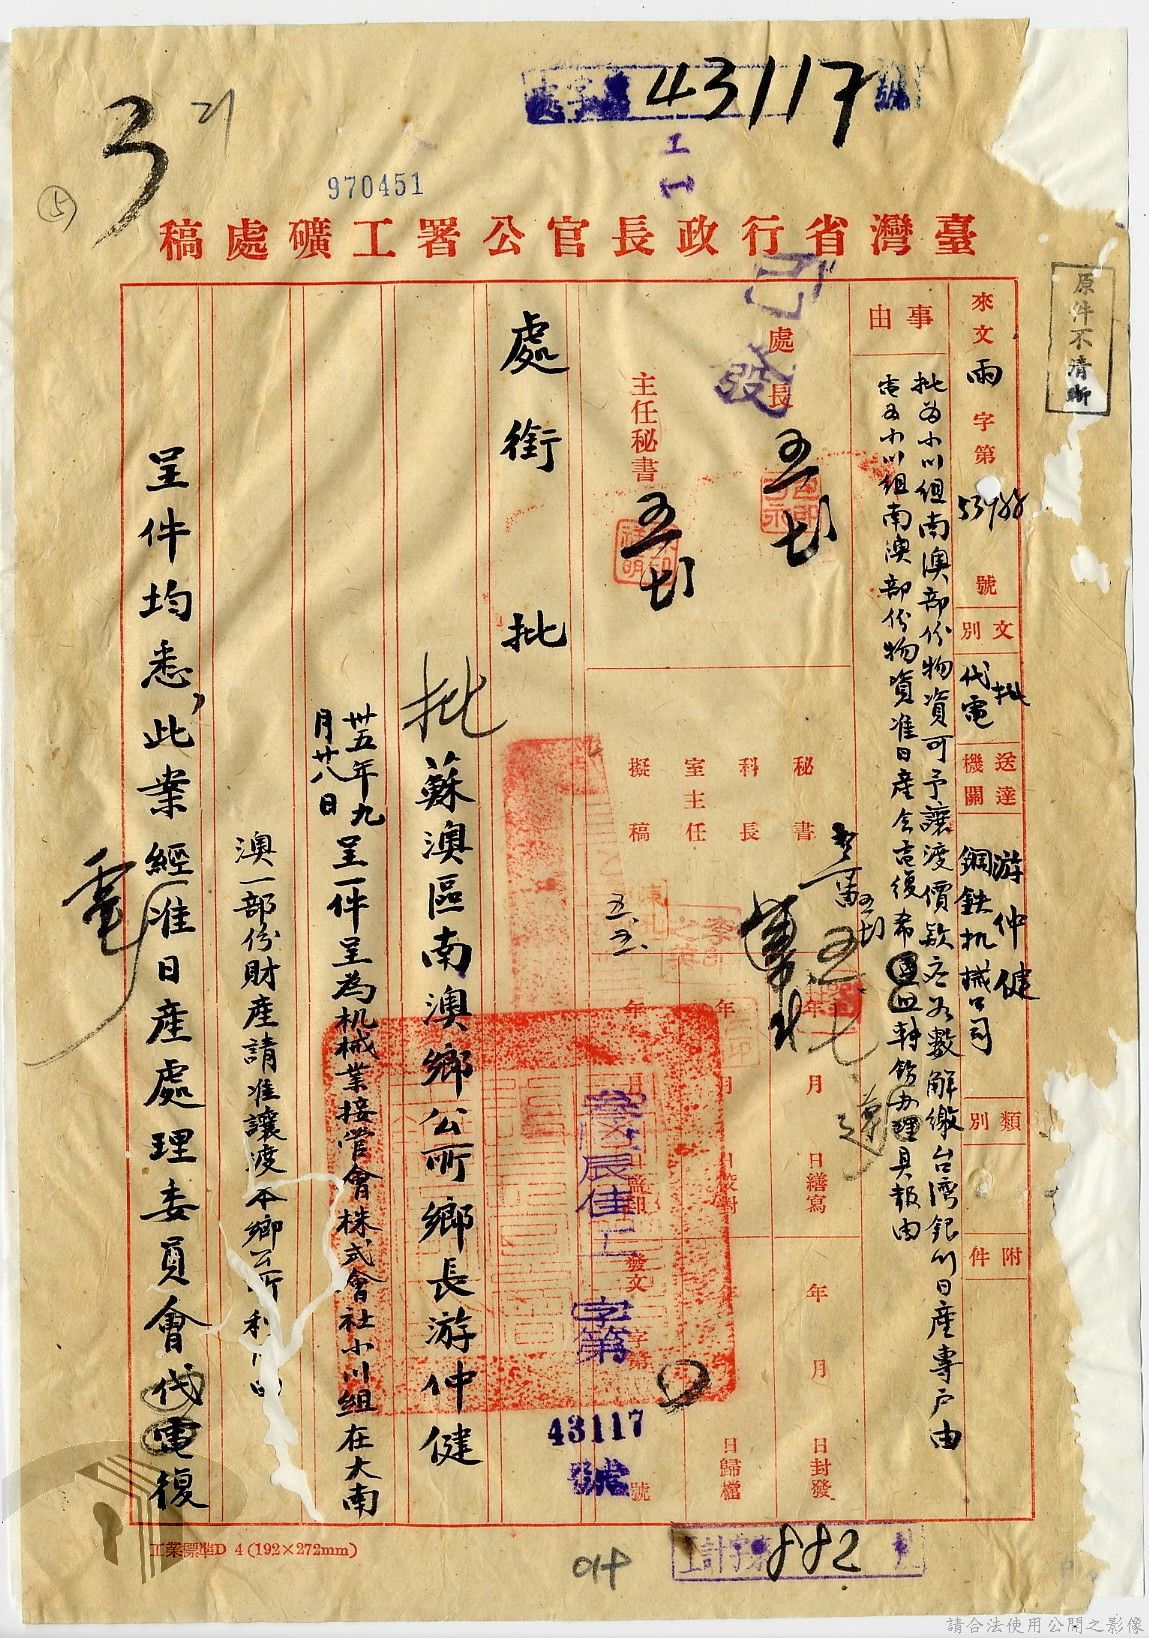 字 43117 號
工
工
3
21
970451
5
臺灣省行政長官公署工礦處稿
原件不清晰
來文 雨 字第 號
文別 批 代電
送達機關 游仲健 鋼鉄机械公司
類別
附件
事由
批為小川組南澳部份物資可予讓渡價款應如數解繳台灣銀行日產專戶由
電為小川組南澳部份物資准日產會電復希 轉飭办理具報由
已發
處長
主任秘書
秘書
科長
室主任
擬稿
五.五.
年 月 日繕寫
年 月 日校對
年 月 日監印
年 月 日封發
年 月 日歸檔
發文 字第 43117 號
處銜 批
批
蘇澳區南澳鄉公所鄉長游仲健
卅五年九月廿八日
呈一件呈為机械業接管會株式會社小川組在大南
澳一部份財產請准讓渡本鄉公所利
呈件均悉,此案經准日產處理委員會代電復
工業標準D 4 (192×272mm)
工計字第882號
請合法使用公開之影像